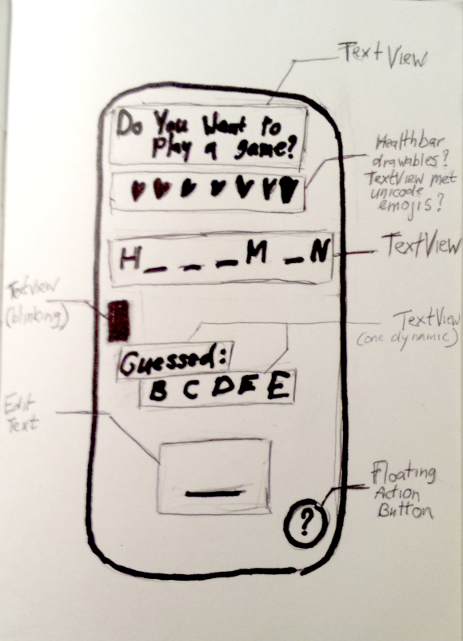 TextView
Do You Want to
Play a game?
Healthbar
drawables?
TextView met
unicode
emojis?
H _ _ _ _ M _ N
TextView
TextView
(blinking)
TextView
(one dynamic)
Guessed:
B C D F E
Edit
Text
Floating
Action
Button
?